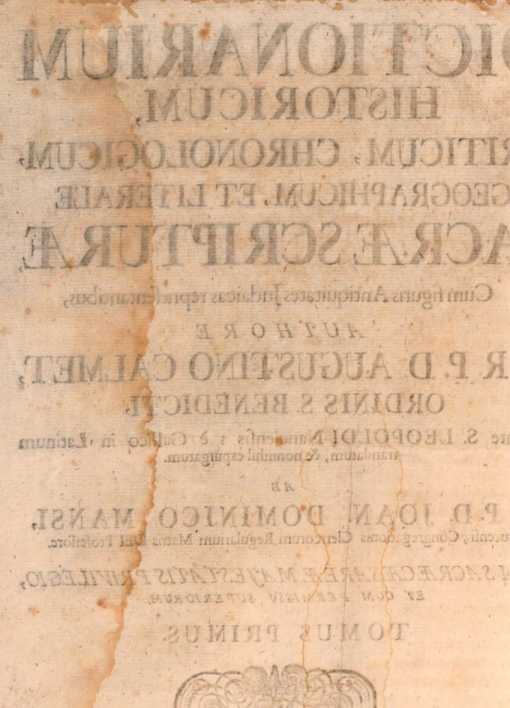 DICTIONARIUM
HISTORICUM,
RITICUM, CHRONOLOGICUM,
GEOGRAPHICUM, ET LITERALE
ACRÆ SCRIPTURÆ,
Cum figuris Antiquitates Judaicas repræsentantibus,
AUTHORE
R. P. D. AUGUSTINO CALMET,
ORDINIS S. BENEDICTI,
S. LEOPOLDI è Gallico in Latinum
translatum, & nonnihil expurgatum.
AB
P. D. JOAN. DOMINICO MANSI,
Congregationis Clericorum Regularium Matris Dei Professore.
SACRÆ CÆSAREÆ MAJESTATIS PRIVILEGIO,
ET CUM PERMISSU SUPERIORUM.
TOMUS PRIMUS.